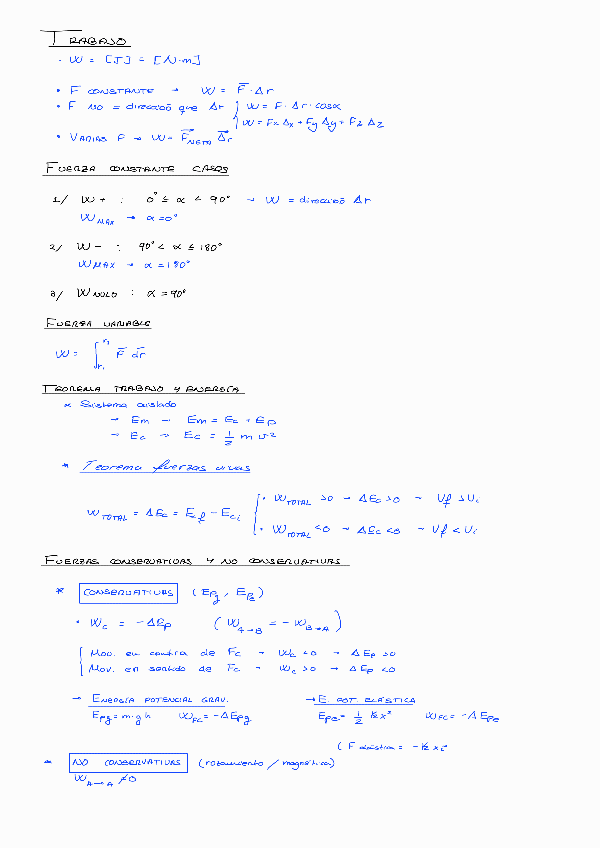 TRABAJO
· W = [J] = [N·m]
· F CONSTANTE → W = F̄·Δr
· F NO = direcció que Δr { W = F·Δr·cosα
W = Fx Δx + Fy Δy + Fz Δz
· VARIAS F → W = F̄NETA Δr
FUERZA CONSTANTE CASOS
1/ W + : 0° ≤ α < 90° → W = direcció Δr
WMAX → α = 0°
2/ W − : 90° < α ≤ 180°
WMAX → α = 180°
3/ WNULO : α = 90°
FUERZA VARIABLE
W = ∫ r₁ r₂ F̄ dr̄
TEOREMA TRABAJO Y ENERGÍA
* Sistema aislado
→ Em → Em = Ec + Ep
→ Ec → Ec = 1/2 m v²
* Teorema fuerzas vivas
WTOTAL = ΔEc = Ecf − Eci { · WTOTAL > 0 → ΔEc > 0 → Vf > Vi
· WTOTAL < 0 → ΔEc < 0 → Vf < Vi
FUERZAS CONSERVATIVAS Y NO CONSERVATIVAS
* CONSERVATIVAS (Epg, Epe)
· Wc = −ΔEp (WA→B = −WB→A)
Mov. en contra de Fc → Wc < 0 → ΔEp > 0
Mov. en sentido de Fc → Wc > 0 → ΔEp < 0
→ ENERGÍA POTENCIAL GRAV. → E. POT. ELÁSTICA
Epg = m·g·h WFC = −ΔEpg Epe = 1/2 k x² WFC = −ΔEpe
(F elástica = −k x
* NO CONSERVATIVAS (rozamiento / magnética)
WA→A ≠ 0